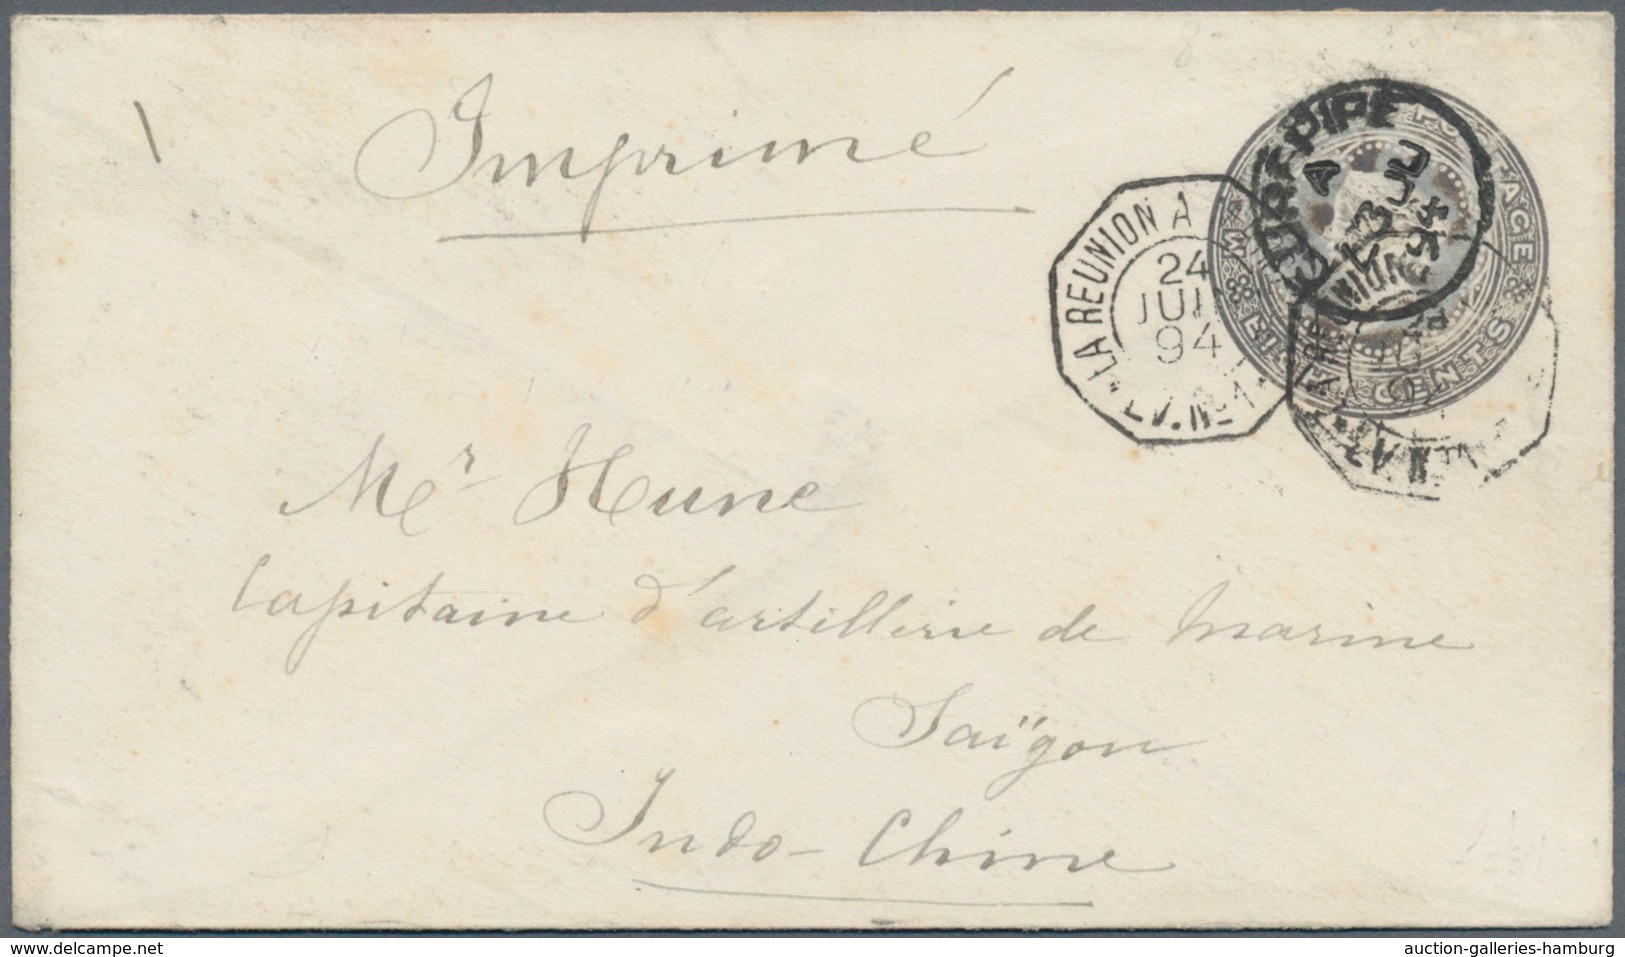 Imprimé
CUREPIPE
A
JU
23
94
LA REUNION A
24
JUIN
94
L.V. N° 1
POSTAGE
EIGHT CENTS
Mr Hune
Capitaine d'artillerie de Marine
Saïgon
Indo-Chine
www.delcampe.net
auction-galleries-hamburg